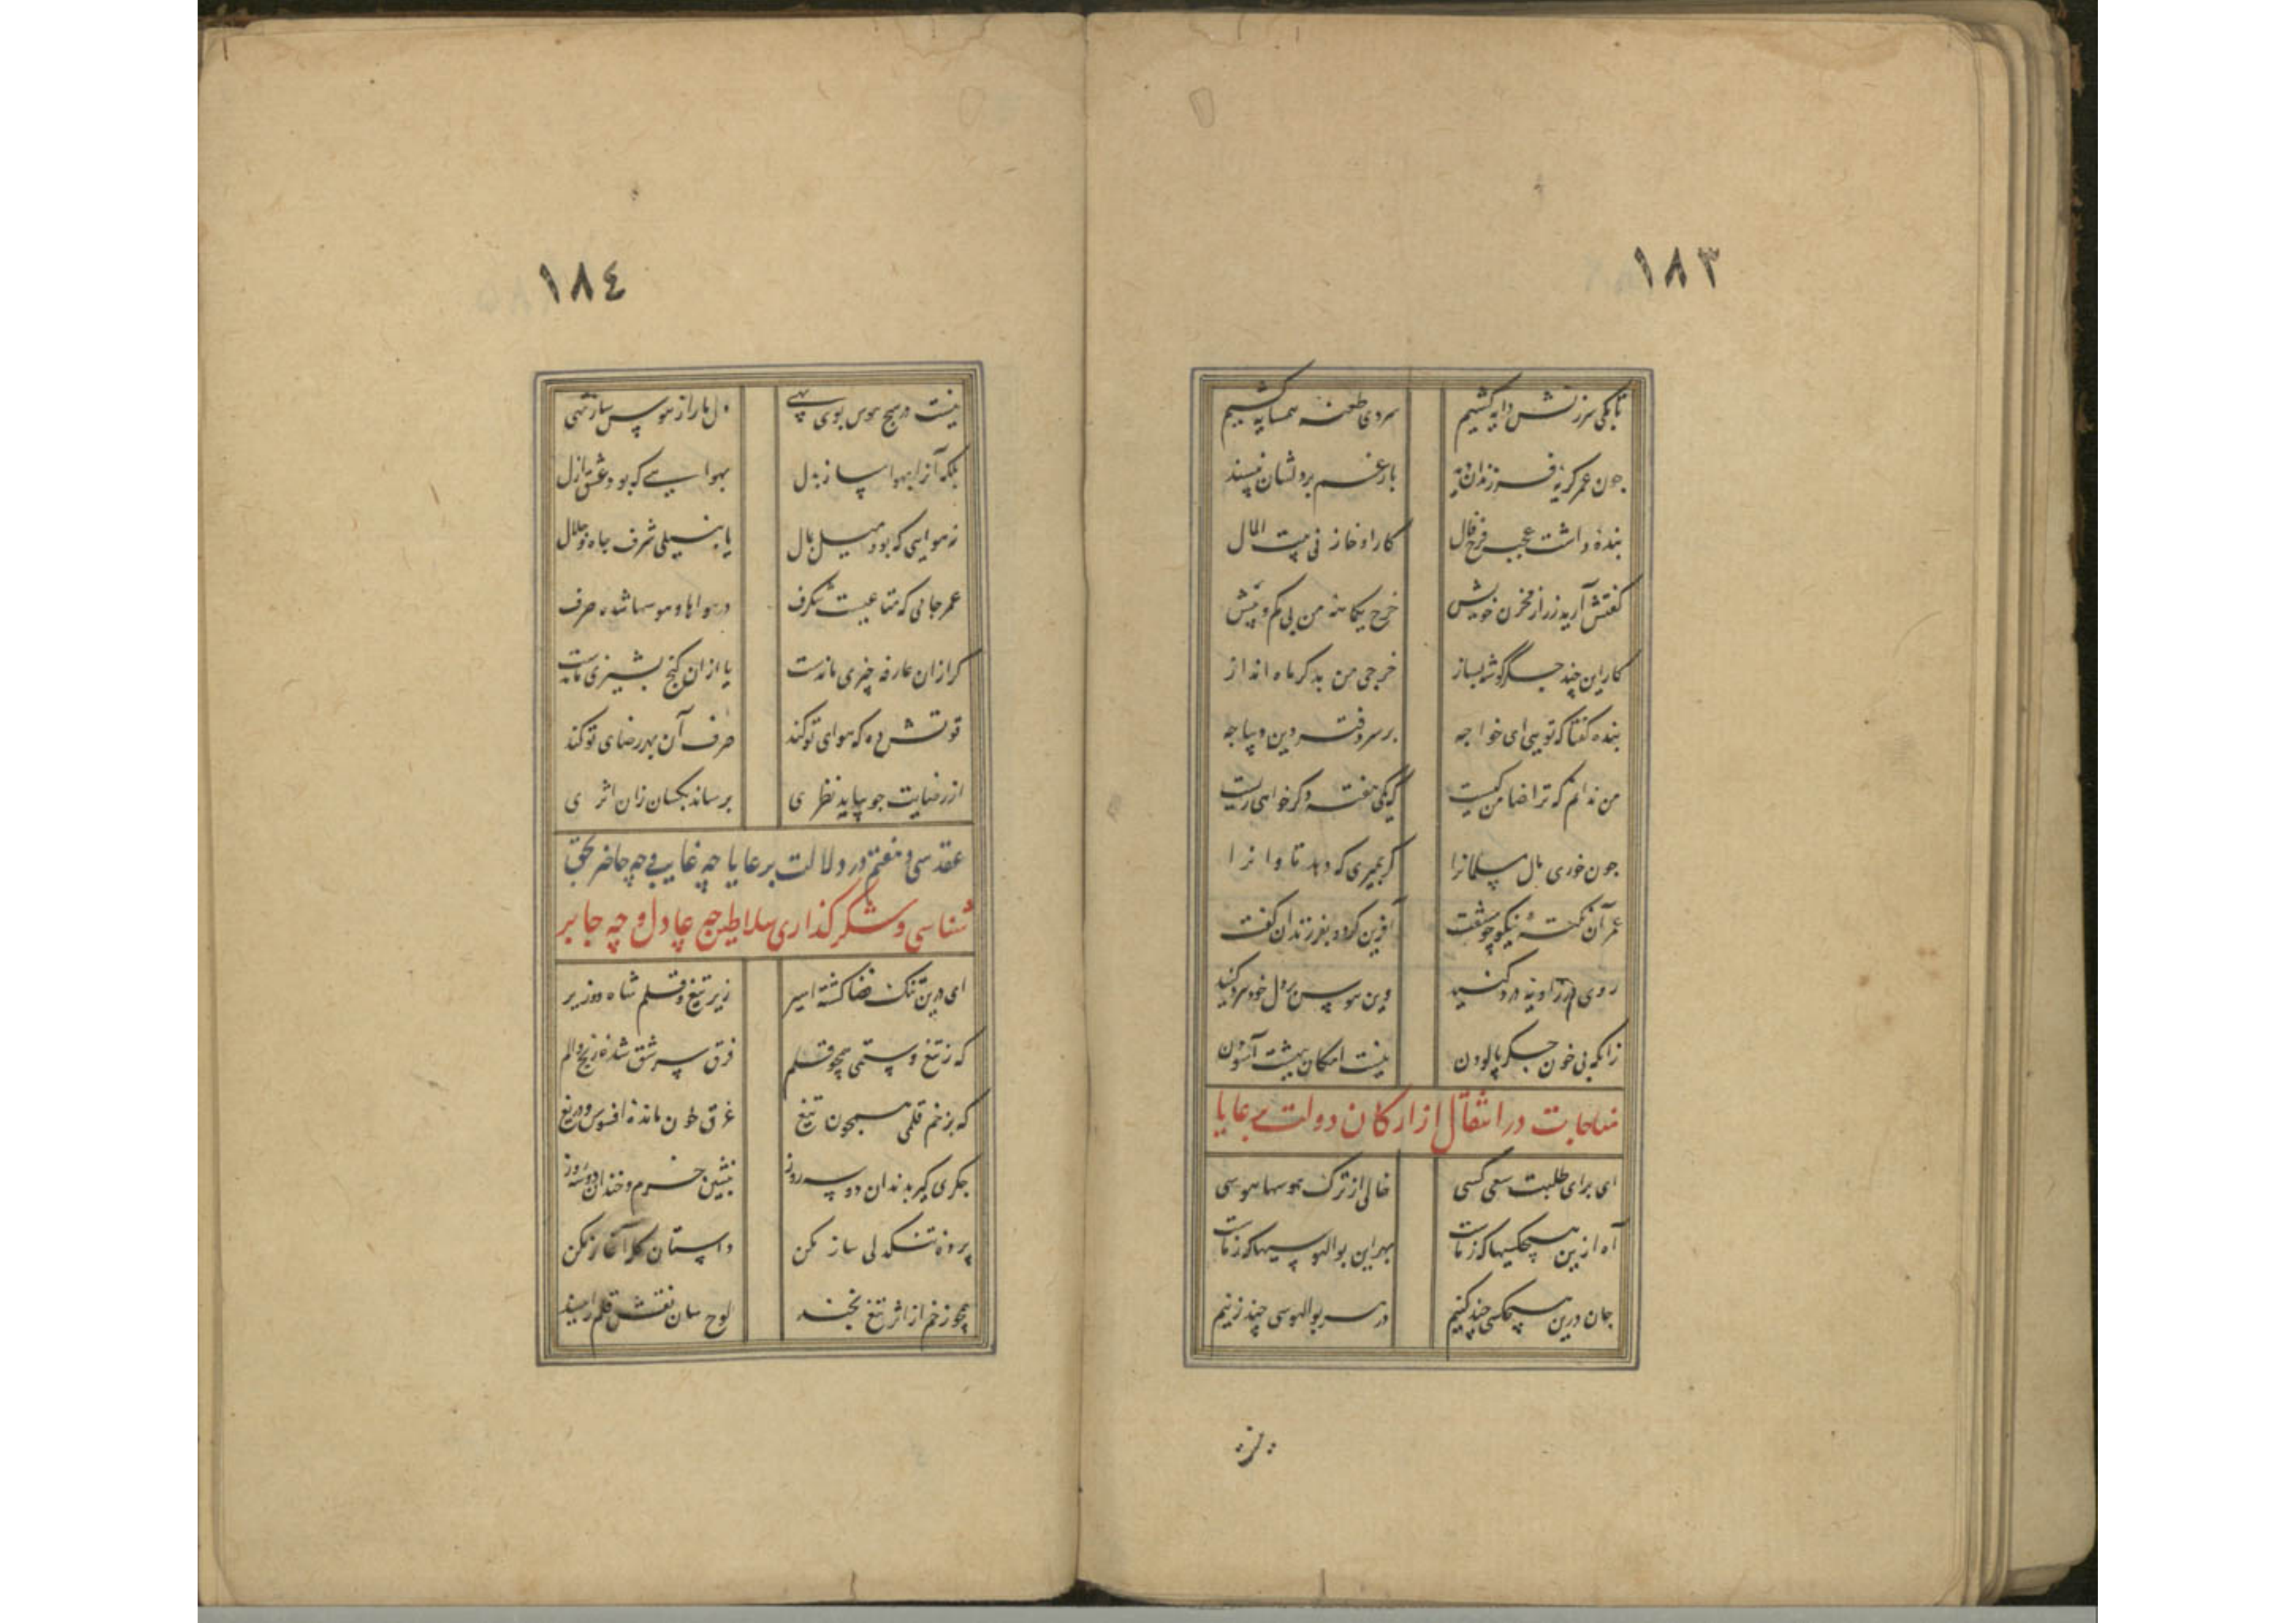 ١٨٣
تا بکی سرزنش دایه کشیم سردی طعنه همسایه کشیم
چون عمر کریه فرزندان دید بار غم بر دلشان نپسندید
بندهٔ داشت عجب فرخ فال کار او خازنی بیت المال
گفتش آرید زر از مخزن خویش خرج یکماهه من بی کم و بیش
کار این چند جگر گوشه بساز خرجی من بدکر ماه انداز
بنده گفتا که تویی ای خواجه بر سر دفتر دین دیباجه
من ندانم که ترا ضامن کیست که یکی هفته دکر خواهی زیست
چون خوری مال مسلمانرا گر بمیری که دهد تاوانرا
عمر آن نکتهٔ نیکو چو شنفت آفرین کرد و بفرزندان گفت
روی در زاویه درد کنید وین هوس بر دل خود سرد کنید
زانکه بی خون جگر پالودن نیست امکان بهشت آسودن
مناجات در انتقال از ارکان دولت برعایا
ای برای طلبت سعی کسی خالی از ترک هوسها هوسی
آه ازین هیچکسیها که ز ماست بهر این بوالهوسیها که ز ماست
جان درین هیچکسی چند کنیم در سر بوالهوسی چند زنیم
١٨٤
نیست در هیچ هوس بوی بهی دل ما را ز هوس ساز تهی
بلکه آنرا بهوا ساز بدل بهوایی که بود عشق ازل
نه هوایی که بود میل بمال یا بسیلی شرف جاه و جلال
عمر جامی که متاعیست شگرف در هواها و هوسها شده صرف
گر از آن عارفه چیزی ماندست یا از آن گنج پشیزی ماندست
قوتش ده که هوای تو کند صرف آن بهر رضای تو کند
از رضایت چو بیابد نظری برساند بکسان زان اثری
عقد سی و هفتم در دلالت بر عایا چه غایب و چه حاضر بحق
شناسی و شکر گذاری سلاطین چه عادل و چه جابر
ای درین تنک فضا گشته اسیر زیر تیغ و قلم شاه و وزیر
که ز تیغ و ستمی همچو قلم فرق سر شق شده از رنج و الم
که بزخم قلمی همچون تیغ غرق خون مانده افسوس و دریغ
جگری گیر بدندان دو سه روز بنشین خرم و خندان دو سه روز
پردهٔ تنکدلی ساز مکن داستان گله آغاز مکن
همچو زخم از اثر تیغ بخند لوح سان نقش قلم را مپسند